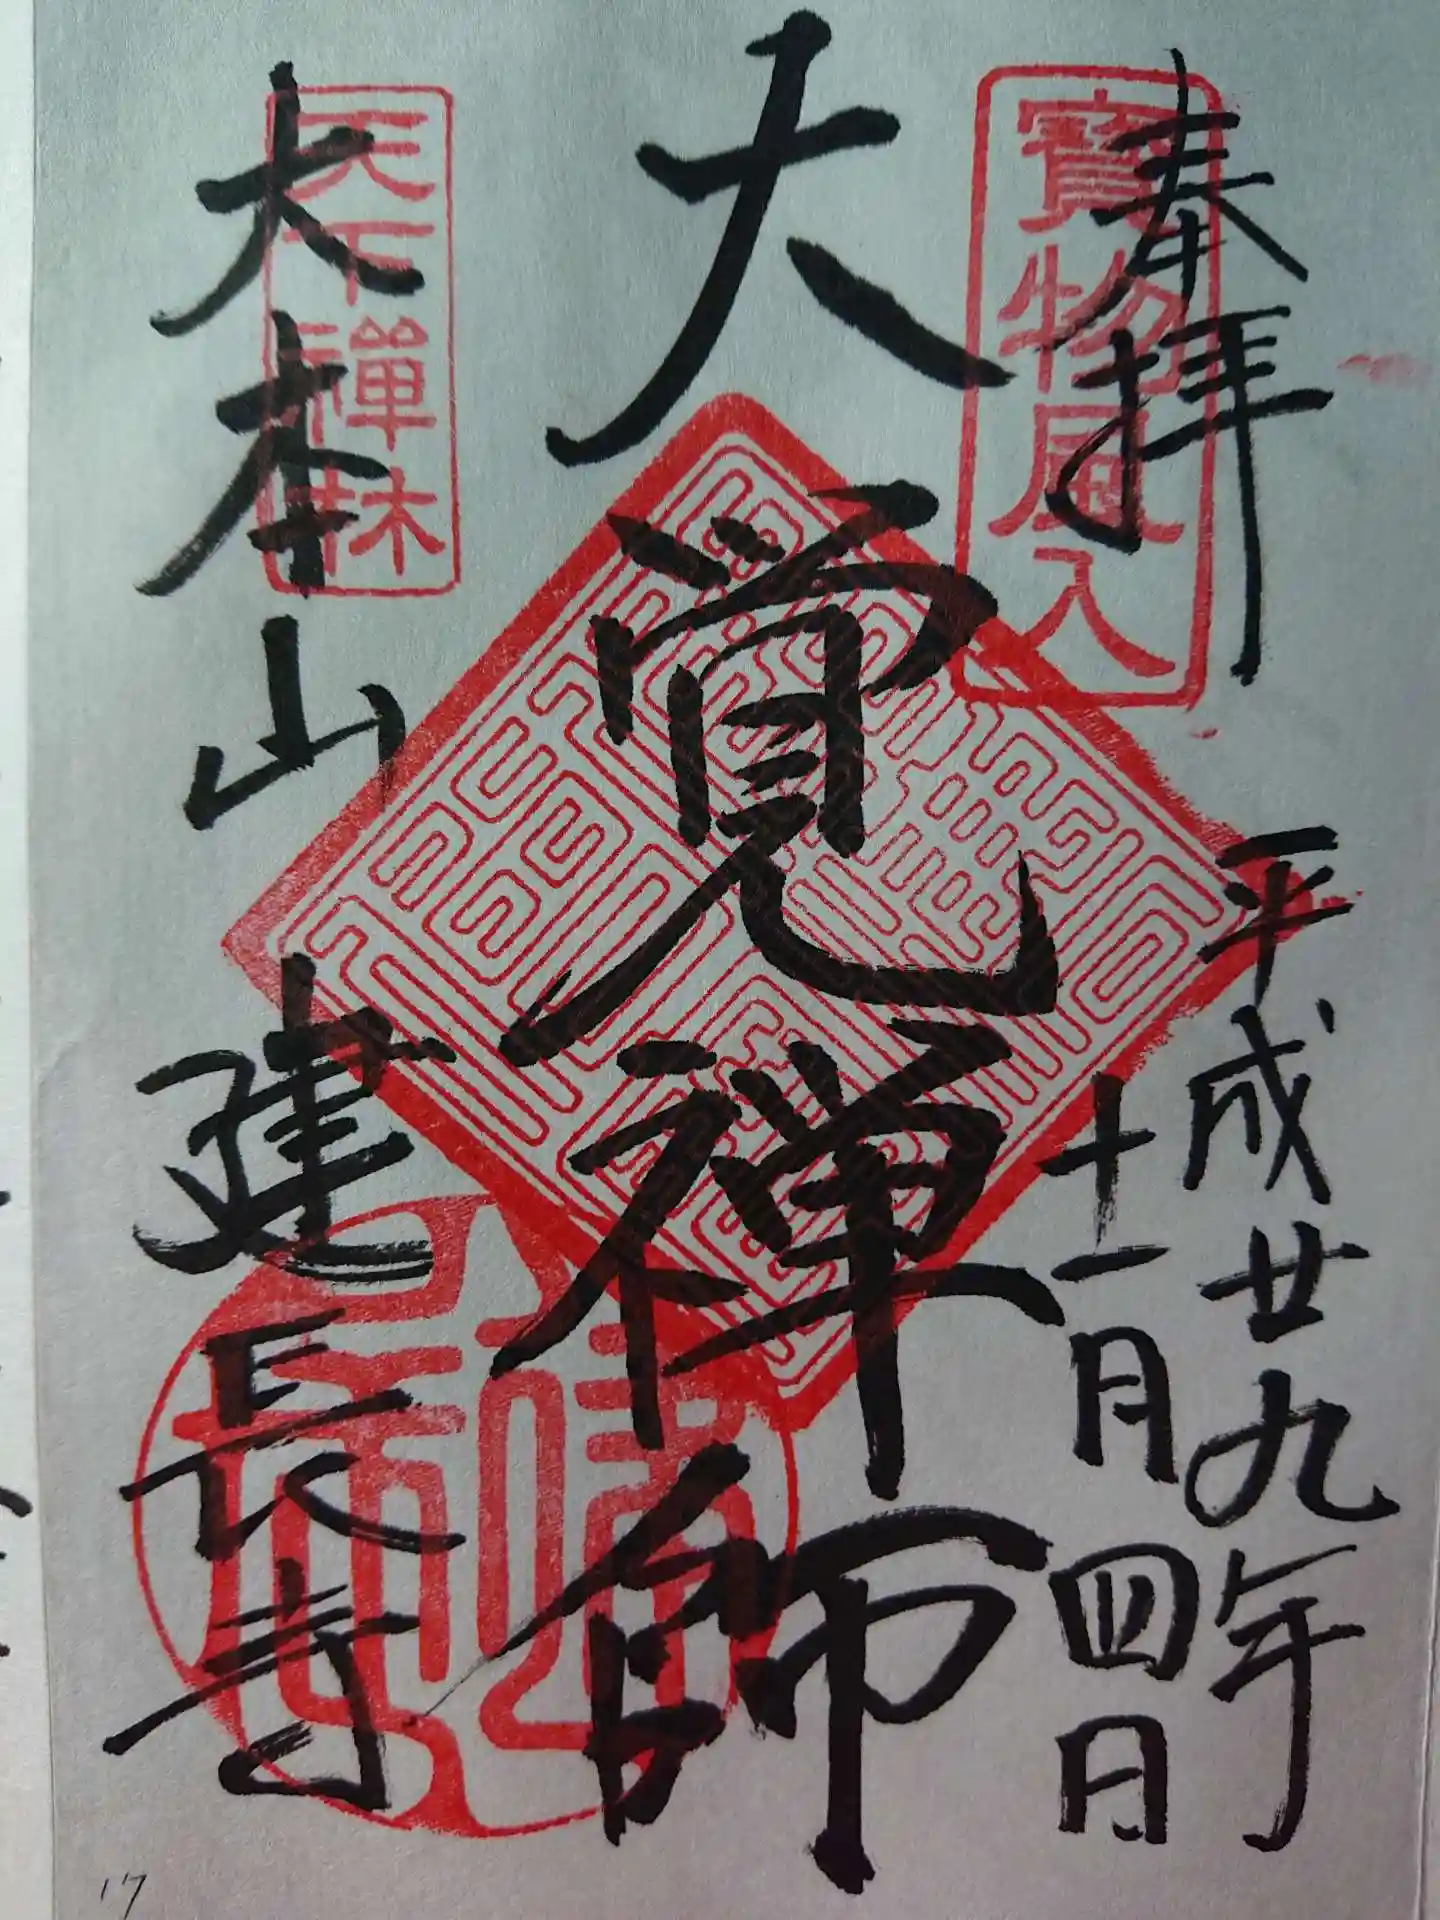 奉拝
平成廿九年
十一月四日
寳物風入
大覚禅師
天下禪林
大本山 建長寺
17